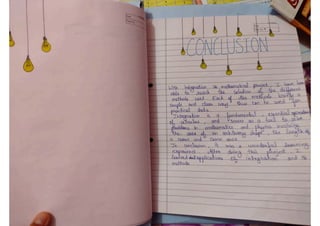 CONCLUSION
With Integration as mathematical project, I have been
able to the solution of the different
methods used. Each of the methods works in
simple and clean ways. These can be used for
practical data.
Integration is a fundamental, essential operation
of calculus, and serves as a tool to solve
problems in mathematics and physics involving
the area of an arbitrary shape, the length of
a curve and
In conclusion, it was a wonderful learning
experience. After doing this project, I
applications of integration and its
methods